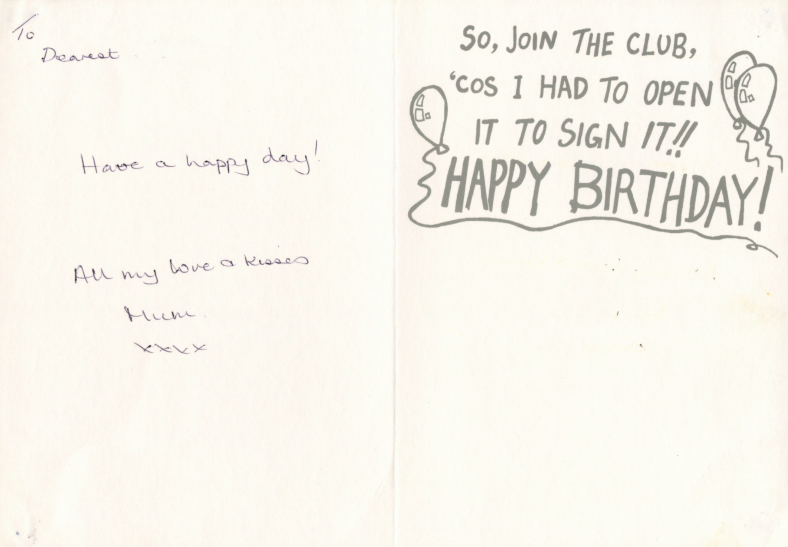 To
Dearest
Have a happy day!
All my love & kisses
Mum.
xxxx
SO, JOIN THE CLUB,
'COS I HAD TO OPEN
IT TO SIGN IT!!
HAPPY BIRTHDAY!